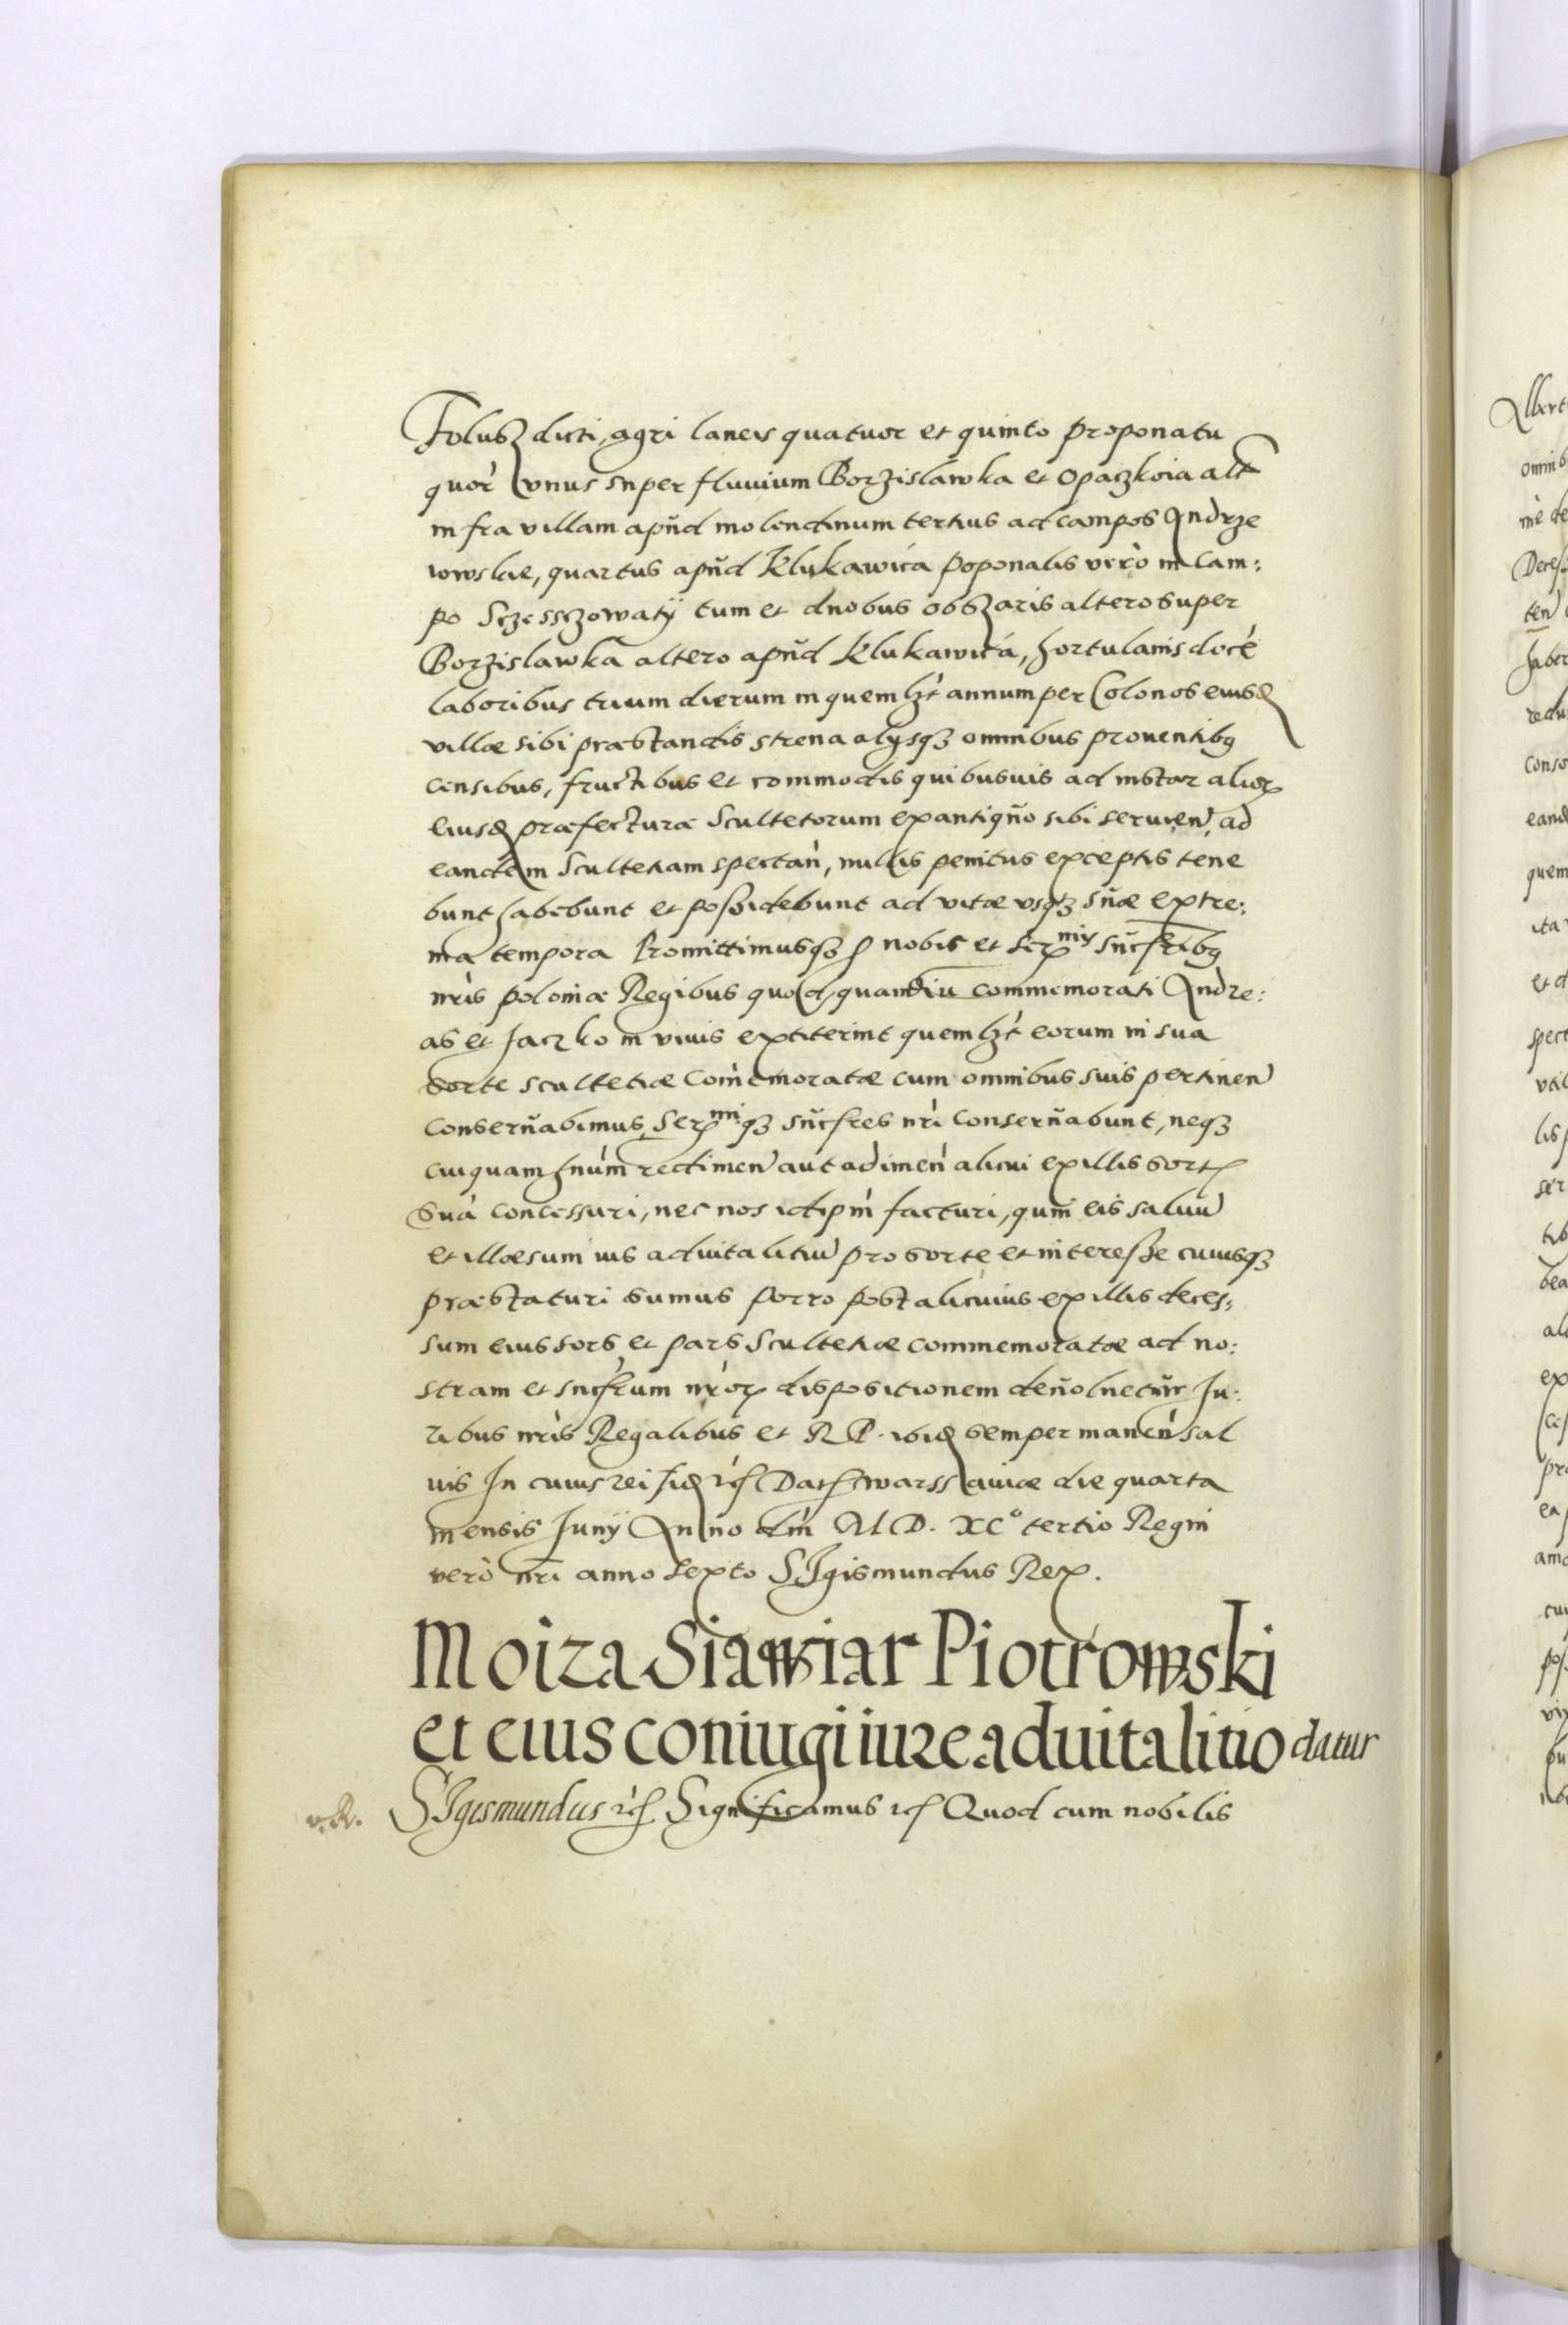 Folusz dicti, agri laneis quatuor et quinto proponatu
quor̀ vnus super fluuium Borzislawka et Opaczkoia alt
infra villam apud molendinum tertius ad campos Andrze
iowskie, quartus apud Klukawica poponalis verò in Cam:
po Sczessczowatÿ tum et duobus obszaris altero super
Borzislawka altero apud Klukawicá, hortulanis docē
laboribus trium dierum in quemlz̀t annum per Colonos eiusd
villæ sibi præstandis strena alysqz omnibus prouentibq
censibus, fructibus et commodis quibusuis ad instar alior
eiusd præfecturæ Scultetorum ex antiquo sibi seruien̄, ad
eandem Scultetiam spectan̄, nullis penitus exceptis tene
bunt habebunt et possidebunt ad vitæ vsqz suæ extre:
ma tempora Promittimusqz p nobis et Ser mis sucribq
nr̄is poloniæ Regibus quod, quamdiu commemorati Andre:
as et Jaczko in viuis extiterint quemlz̀t eorum in sua
Sorte scultetiæ com̄emoratæ cum omnibus suis pertinen̄
conseruabimus Ser mi qz sucres nr̄i conseruabunt, neqz
cuiquam hnúm redimen̄ aut adimen̄ alicui ex illis sort
Suá concessuri, nec nos idipm̄ facturi, qum̄ eis saluū
et illæsum ius aduitalitiū pro sorte et interesse cuiusqz
præstaturi sumus Porro post alicuius ex illis deces:
sum eius sors et pars Scultetiæ commemoratæ ad no:
stram et sucrum nr̄or dispositionem deuoluetur Ju:
ribus nr̄is Regalibus et R P. ibid semper manen̄ sal
uis In cuius rei fid etc Dat Warssauiæ die quarta
mensis Junÿ Anno dm̄ M D. XC° tertio Regni
verò nr̄i anno sexto SIgismundus Rex.
Moiza Siawsiar Piotrowski
et eius coniugi iure aduitalitio datur
v. R. SIgismundus etc Significamus etc Quod cum nobilis